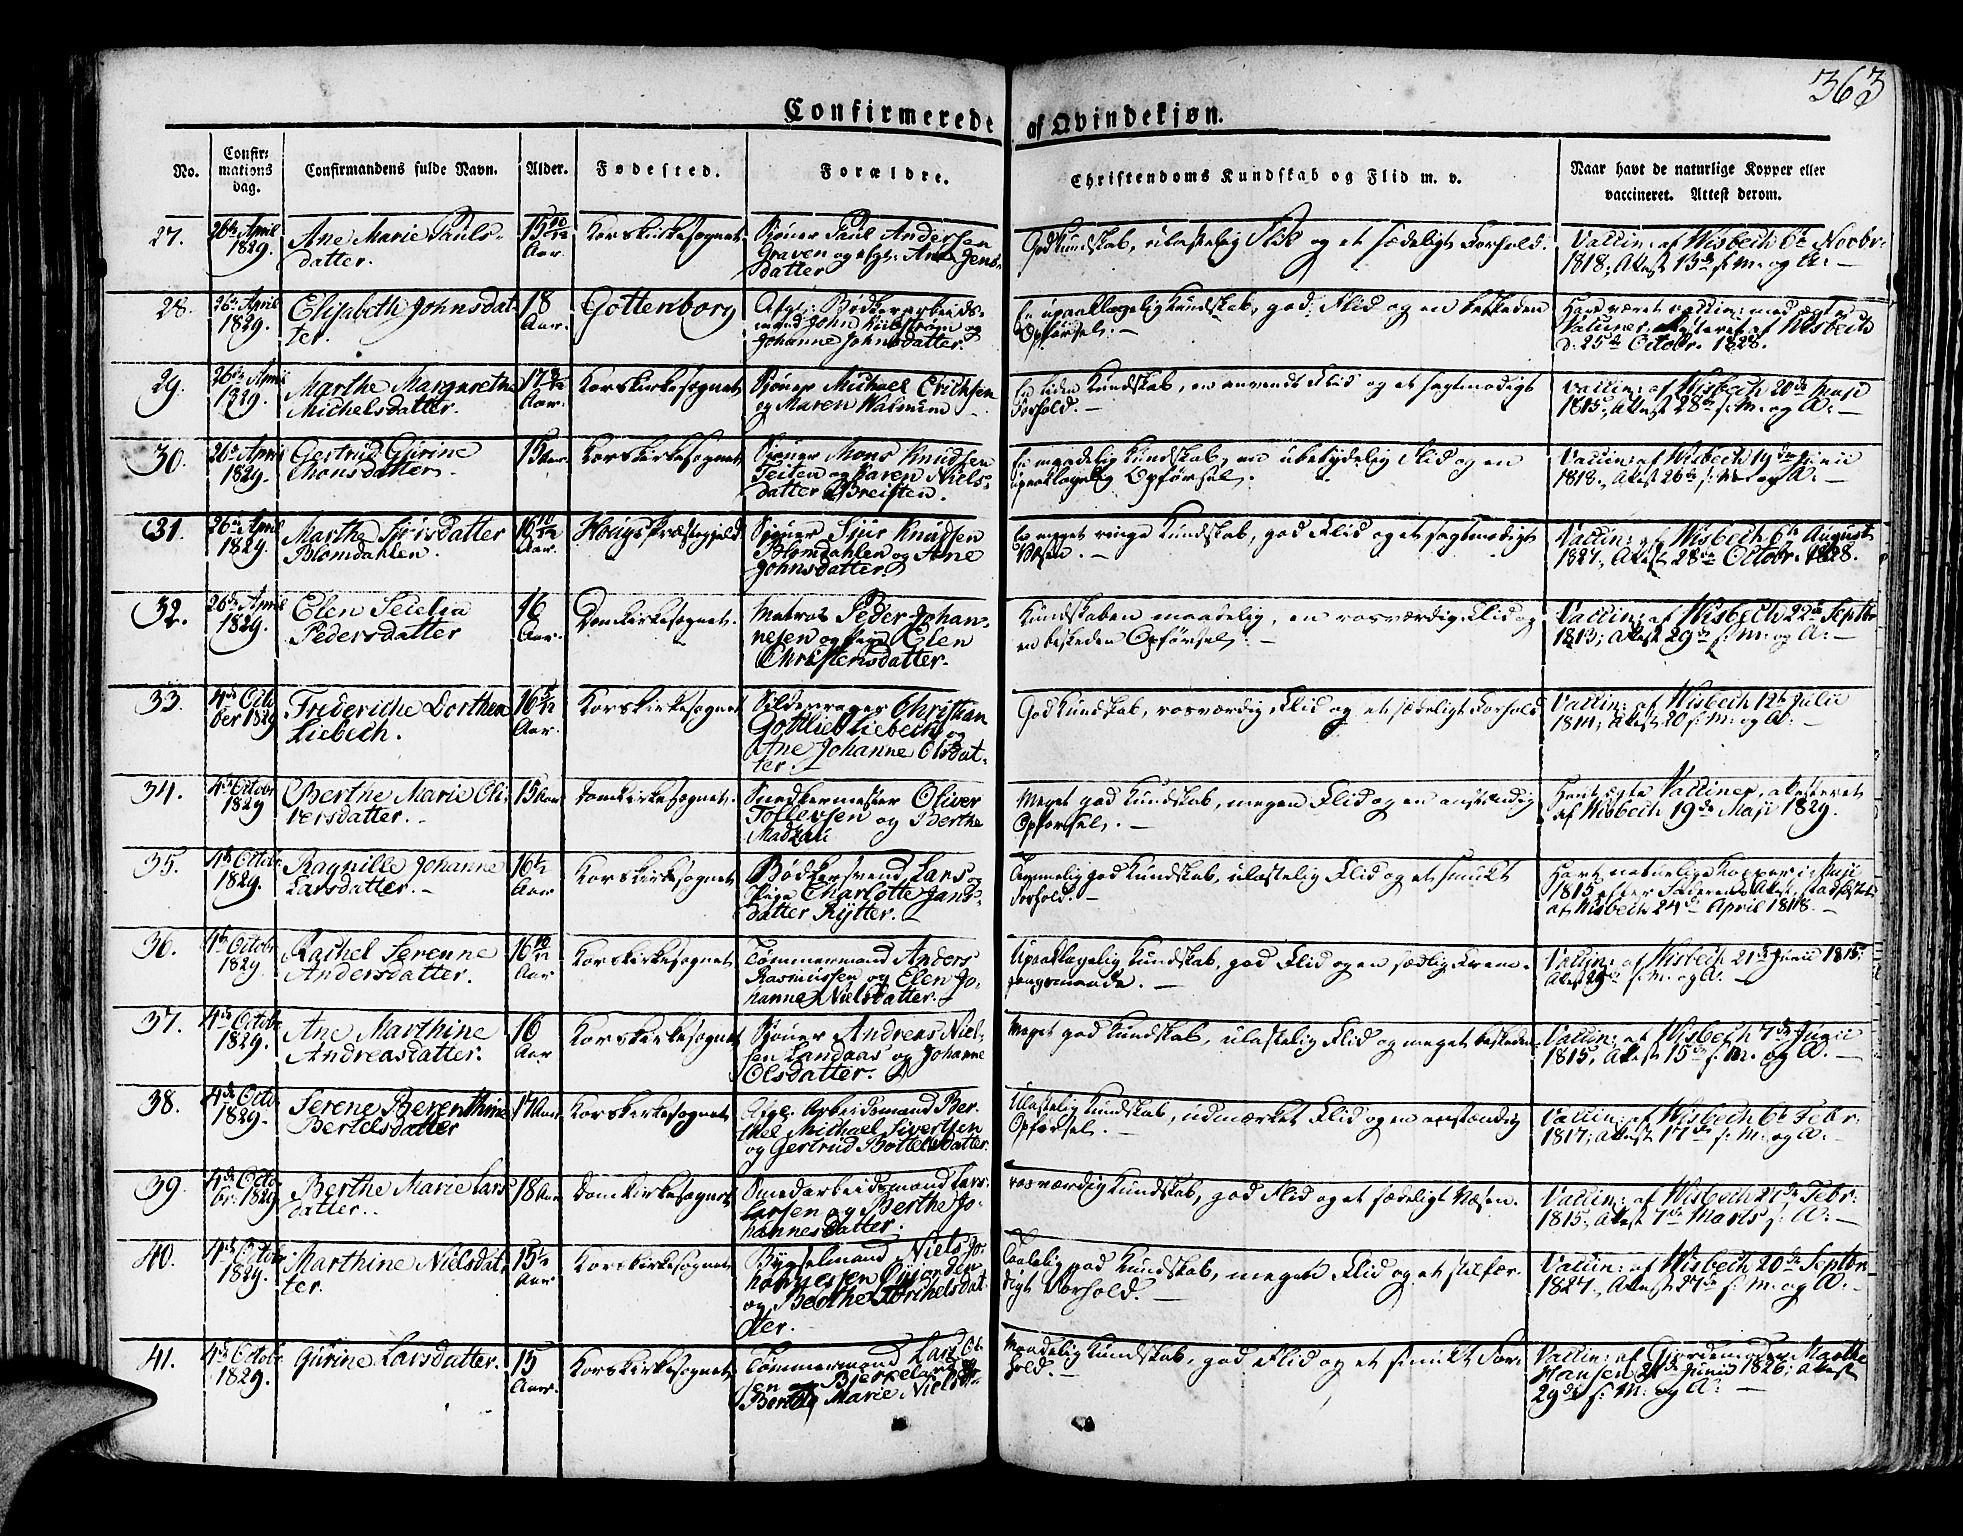 363
Confirmerede af Qvindekjøn.
No.
Confir-
mations
dag.
Confirmandens fulde Navn.
Alder.
Fødested.
Forældre.
Christendoms Kundskab og Flid m. v.
Naar havt de naturlige Kopper eller
vaccineret. Attest derom.
27.
26de April
1829.
Ane Marie Pauls-
datter.
15 10/12
Aar.
Korskirkesognet
Sjouer Paul Andersen
Graven og Ane Jens-
datter
God Kundskab, ulastelig Flid og et sædeligt Forhold.
Vaccin: af Wisbech 6te Novbr.
1818, Attest 13de s: M: og A: —
28.
26de April
1829.
Elisabeth Johnsdat-
ter.
18
Aar.
Gottenborg
Afg: Bødkerarbeids-
mand John og
Johanne Johnsdatter.
En upaaklagelig Kundskab, god Flid og en beskeden
Opførsel. —
Har været vaccin: med ægte
Vacciner, attesteret af Wisbech
d. 25de Octobr. 1828.
29.
26de April
1829.
Marthe Margarethe
Michelsdatter.
17
Aar.
Korskirkesognet
Sjouer Michael Erichsen
og Maren
En liden Kundskab, en anvendt Flid og et sagtmodigt
Forhold. —
Vaccin: af Wisbech 20de Maji
1815, Attest 28de s: M: og A: —
30.
26de April
1829.
Gertrud Gurine
Monsdatter.
15 Aar.
Korskirkesognet
Sjouer Mons Knudsen
Teiten og Karen Niels-
datter Breisten.
En maadelig Kundskab, en ubetydelig Flid og en
upaaklagelig Opførsel.
Vaccin: af Wisbech 19de Junii
1818, Attest 26de s: M: og A: —
31.
26de April
1829.
Marthe Sjursdatter
Blomdahlen.
16 10/12
Aar.
Hougs Præstegjeld
Sjouer Sjur Knudsen
Blomdahlen og Ane
Johnsdatter.
En meget ringe Kundskab, god Flid og et sagtmodigt
Væsen. —
Vaccin: af Wisbech 6te August
1827, Attest 28de Octobr. 1828.
32.
26de April
1829.
Elen Secilia
Pedersdatter
16
Aar.
Domkirkesognet.
Matros Peder Johan-
nesen og Pige Elen
Christensdatter.
Kundskaben maadelig, en rosværdig Flid og
en beskeden Opførsel. —
Vaccin: af Wisbech 22de Septbr
1813, Attest 29de s: M: og A: —
33.
4de Octo-
ber 1829
Friderikke Dorthea
Liebech.
16 5/12
Aar.
Korskirkesognet
Sildevrager Christian
Gottlieb Liebech og
Ane Johanne Olsdat-
ter.
God Kundskab, rosværdig Flid og et sædeligt Forhold
Vaccin: af Wisbech 12te Julii
1814, Attest 20 s: M: og A: —
34.
4de Octobr
1829
Berthe Marie Oli-
versdatter. —
15 Aar
Domkirkesognet.
Snedkermester Oliver
Tollevsen og Berthe
Meget god Kundskab, megen Flid og en anstændig
Opførsel. —
Havt ægte Vacciner, attesteret
af Wisbech 19de Maji 1829.
35.
4de Octobr.
1829.
Ragnille Johanne
Larsdatter. —
16 1/2
Aar
Korskirkesognet
Bødkersvend Lars og
Pige Charlotte Jans-
datter Rytter.
Temmelig god Kundskab, ulastelig Flid og et smukt
Forhold. —
Havt naturlige Kopper i Maji
1815 efter Faderens Attest, stadfæstet
af Wisbech 24de April 1818. —
36.
4de Octobr
1829.
Rachel Serenne
Andersdatter.
16 10/12
Aar
Korskirkesognet
Tømmermand Anders
Rasmussen og Elen Jo-
hanne Nielsdatter.
Upaaklagelig Kundskab, god Flid og en sædlig Frem-
gangsmaade. —
Vaccin: af Wisbech 21de Junii 1815,
Attest 29de s: M: og A: —
37.
4de Octobr
1829.
Ane Marthine
Andreasdatter.
16
Aar
Korskirkesognet
Sjouer Andreas Niel-
sen Landaas og Johanne
Olsdatter.
Meget god Kundskab, ulastelig Flid og meget beskeden.
Vaccin: af Wisbech 7de Junii
1815, Attest 15de s: M: og A: —
38.
4de Octo.
1829.
Serene Berenthine
Bertelsdatter
17 Aar
Korskirkesognet
Afg: Arbeidsmand Ber-
thel Michael Sivertsen
og Gertrud
Ulastelig Kundskab, udmærket Flid og en anstændig
Opførsel. —
Vaccin: af Wisbech 6te Febr.
1817, Attest 17de s: M: og A: —
39.
4de Octo-
br. 1829
Berthe Marie Lars-
datter.
18 Aar
Domkirkesognet
Smedarbeidsmand Lars
Larsen og Berthe Jo-
hannesdatter.
Rosværdig Kundskab, god Flid og et sædeligt Væsen.
Vaccin: af Wisbech 27de Febr:
1815, Attest 7de Marts s: A: —
40.
4de Octobr
1829.
Marthine Nielsdat-
ter.
15 1/2
Aar
Korskirkesognet
Bygselmand Niels Jo-
hannessen
og Berthe Michelsdat-
ter.
Taalelig god Kundskab, megen Flid og et stilfær-
digt Forhold. —
Vaccin: af Wisbech 20de Septbr
1827, Attest 27de s: M: og A: —
41.
4de Octobr.
1829.
Gurine Larsdatter.
15
Aar.
Korskirkesognet
Tømmermand Lars Ol-
sen og
Berthe Marie Nielsd.
Maadelig Kundskab, god Flid og et smukt For-
hold. —
Vaccin: af Gjordemoder Marthe
Hansen 21de Junii 1826, Attest
29de s: M: og A: —